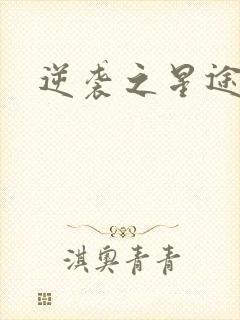 逆袭之星途
淇奥青青